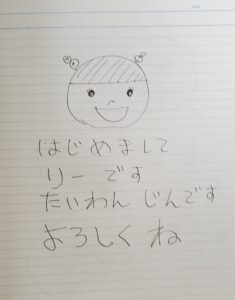 はじめまして
りーです
たいわん じんです
よろしく ね